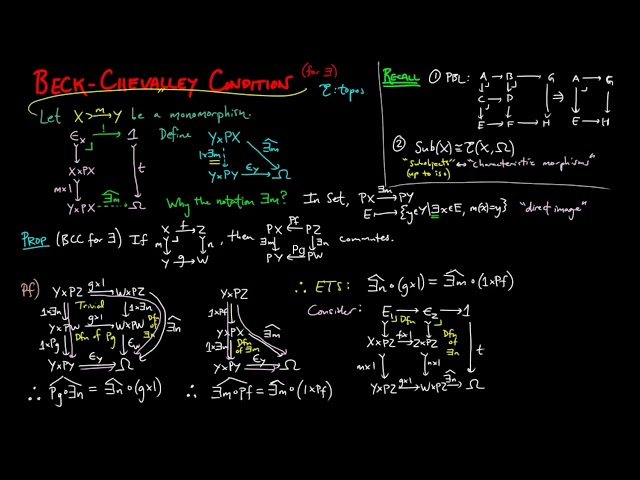 BECK-CHEVALLEY CONDITION (for ∃)
ℰ: topos
Let X >m→ Y be a monomorphism.
∈x → 1
X×PX
m×1
t
Y×PX ∃̂m Ω
Define Y×PX
1×∃m
∃̂m
Y×PY ∈y Ω
Why the notation ∃m?
In Set, PX ∃m→ PY
E ↦ {y∈Y | ∃x∈E, m(x)=y} "direct image"
RECALL ① PBL: A → B → G
C → D
E → F → H
⇒ A → G
E → H
② Sub(X) ≅ ℰ(X,Ω)
"subobjects" ↔ "characteristic morphisms"
(up to iso)
PROP (BCC for ∃) If X f→ Z
m n
Y g→ W
, then PX Pf← PZ
∃m ∃n
PY Pg← PW
commutes.
Pf)
Y×PZ g×1 W×PZ
1×∃n Trivial 1×∃n
Y×PW g×1 W×PW
1×Pg Defn of Pg ∈w Defn of ∃n ∃̂n
Y×PY ∈y Ω
∴ Pg∘∃n^ = ∃̂n∘(g×1)
Y×PZ
1×Pf
Y×PX ∃̂m
1×∃m Defn of ∃m
Y×PY ∈y Ω
∴ ∃m∘Pf^ = ∃̂m∘(1×Pf)
∴ ETS: ∃̂n∘(g×1) = ∃̂m∘(1×Pf)
Consider: E₁ → ∈z → 1
Dfn Dfn of ∃n
X×PZ f×1 Z×PZ
m×1 n×1 t
Y×PZ g×1 W×PZ ∃̂n Ω